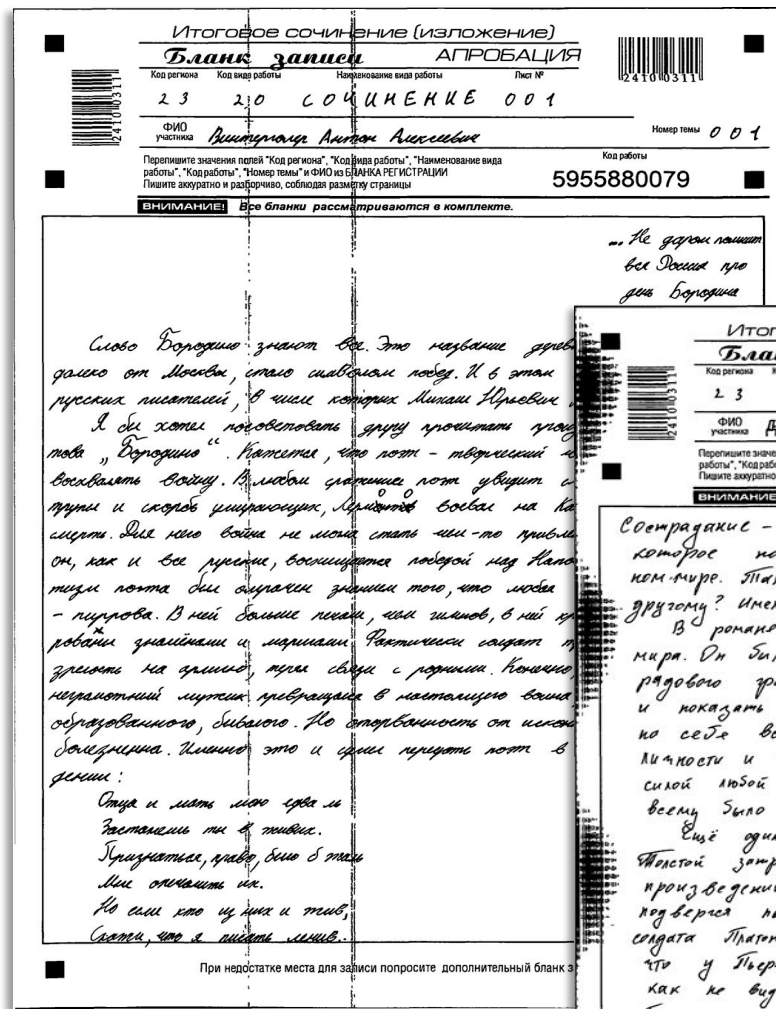 Итоговое сочинение (изложение)
Бланк записи АПРОБАЦИЯ
2410 0311
Код региона Код вида работы Наименование вида работы Лист №
23 20 СОЧИНЕНИЕ 001
2410 0311
ФИО участника Антон Алексеевич Номер темы 001
Перепишите значения полей "Код региона", "Код вида работы", "Наименование вида
работы", "Код работы", "Номер темы" и ФИО из БЛАНКА РЕГИСТРАЦИИ
Пишите аккуратно и разборчиво, соблюдая разметку страницы
Код работы
5955880079
ВНИМАНИЕ! Все бланки рассматриваются в комплекте.
... Не даром помнит
вся Россия про
день Бородина
Слово Бородино знают все. Это название дерев
далеко от Москвы, стало символом побед. И в этом
русских писателей, в числе которых Михаил Юрьевич
Я бы хотел посоветовать другу прочитать произ
това „Бородино“. Кажется, что поэт - творческий
восхвалять войну. В любом сражении поэт увидит
трупы и скорбь умирающих, Лермонтов воевал на Ка
смерть. Для него война не могла стать чем-то привле
он, как и все русские, восхищается победой над Напо
тизм поэта был омрачен знанием того, что любая
- пиррова. В ней больше печали, чем гимнов, в ней
знамёнами и маршами. Фактически солдат
зрелость на армию, теряя связи с родными. Конечно,
неграмотный мужик превращался в настоящего воина
образованного, бывалого. Но оторванность от
болезненна. Именно это и сумел передать поэт в
дении:
Отца и мать мою едва ль
Застанешь ты в живых.
Признаться, право, было б жаль
Мне опечалить их.
Но если кто из них и жив,
Скажи, что я писать ленив..
При недостатке места для записи попросите дополнительный бланк з
Итог
Блан
Код региона
23
2410 0311
ФИО участника
Перепишите значе
работы", "Код раб
Пишите аккуратно
ВНИМАНИЕ
Сострадание -
которое
ном-мире.
другому? Имен
В романе
мира. Он был
рядового
и показать
по себе
личности и
силой любой
всему было
Ещё один
Толстой
произведени
подвергся
солдата Платон
что у Пьер
как не вид